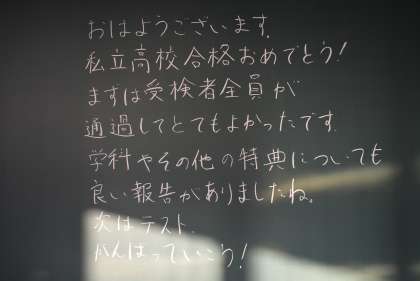 おはようございます.
私立高校合格おめでとう!
まずは受検者全員が
通過してとてもよかったです.
学科やその他の特典についても
良い報告がありましたね。
次はテスト.
がんばっていこう!